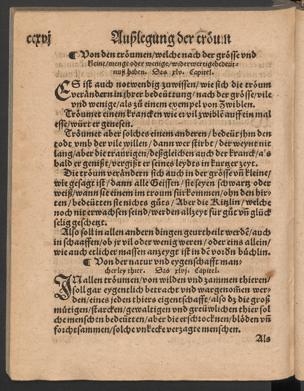 ccxvj Außlegung der tröum
¶ Von den tröumen/welche nach der grösse vnd
kleine/menge oder wenige/widerwertige bedeüt-
nuß haben. Das xlv. Capitel.
ES ist auch notwendig zuwissen/wie sich die tröum
verändern in ihrer bedeüttung/nach der grösse/vile
vnd wenige/als zů einem exempel von Zwiblen.
Troümet einem krancken wie er vil zwibel auff ein mal
esse/würt er genesen.
Troümet aber solches einem anderen/bedeüt ihm den
todt vmb der vile willen/dann wer stirbt/der weynt nit
lang/aber die traurigen/deßgleichen auch der kranck/als
bald er genißt/vergißt er seines leyds in kurtzer zeyt.
Die tröum verändern sich auch in der grösse vñ kleine/
wie gesagt ist/dann alle Geissen/sie seyen schwartz oder
weiß/wann sie einem im troum fürkommen/ohn den bir-
ten/bedeütten sie nichts gůts/Aber die Kitzlin/welche
noch nit erwachsen seind/werden allzeyt für gůt vñ glück
selig geschetzt.
Also soll in allen andern dingen geurtheilt werdē/auch
in schaaffen/ob jr vil oder wenig weren/oder eins allein/
wie auch etlicher massen anzeygt ist in dē vordñ büchlin.
¶ Von der natur vnd eygenschafft man-
cherley thier. Das xlvj. Capitel.
IN allen tröumen/von wilden vnd zammen thieren/
soll gar eygentlich betracht vnd wargenoṁen wer-
den/eines jeden thiers eigentschafft/also dz die groß
mütigen/starcken/gewaltigen vnd greüwlichen thier sol
che menschen bedeütten/aber die erschrocknen/blöden vñ
forchtsammen/solche vnkecke verzagte menschen.
Als